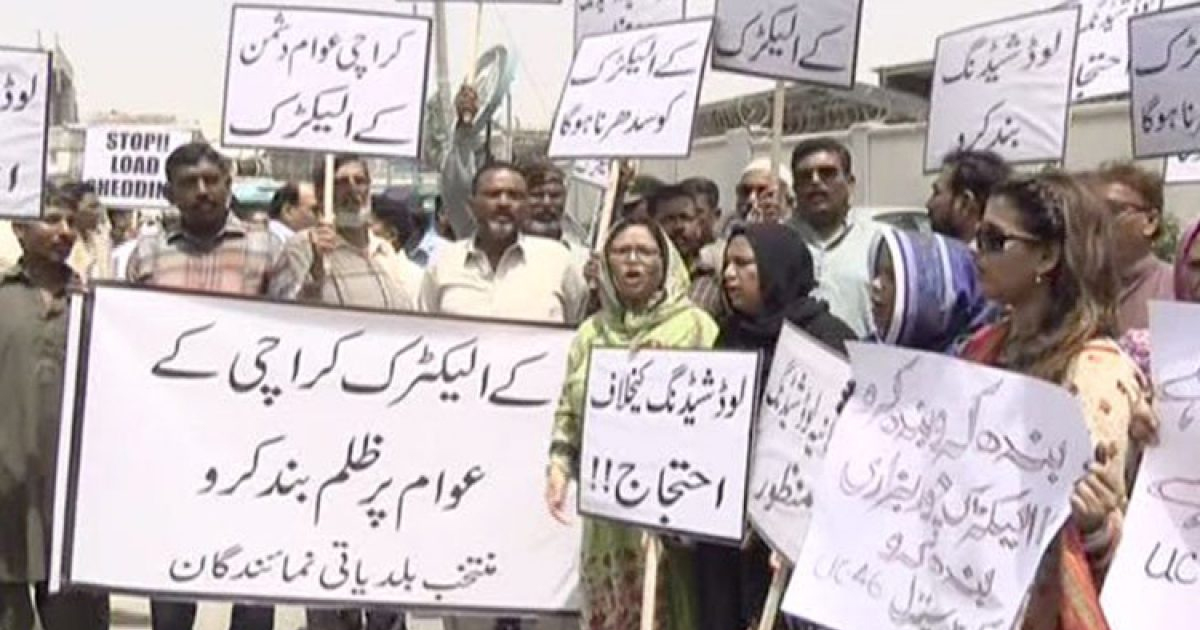 کراچی عوام دشمن
کے الیکٹرک
کے الیکٹرک
کو سدھرنا ہوگا
کے الیکٹرک
لوڈشیڈنگ
بند کرو
احتجاج
ٹرک
رنا ہوگا
لوڈ
STOP!!
LOAD
SHEDDIN
کے الیکٹرک کراچی کے
عوام پر ظلم بند کرو
منتخب بلدیاتی نمائندگان
لوڈشیڈنگ کیخلاف
احتجاج!!
منظور
بند کرو بند کرو
الیکٹرک
بند کرو
UC46
UC